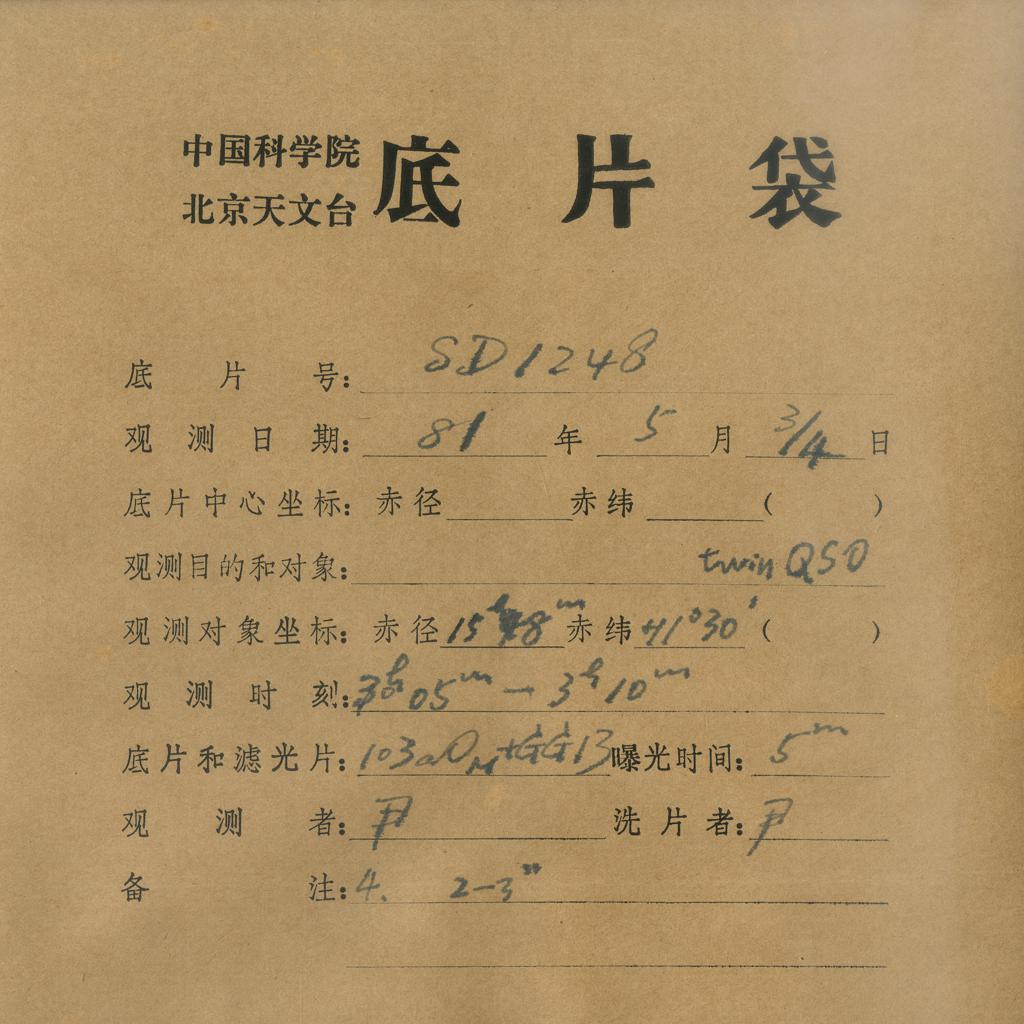 中国科学院
北京天文台
底片袋
底片号: SD1248
观测日期: 81 年 5 月 3/4 日
底片中心坐标: 赤径 赤纬 ( )
观测目的和对象: twin QSO
观测对象坐标: 赤径 15ʰ48ᵐ 赤纬 +1°30′ ( )
观测时刻: 3ʰ05ᵐ — 3ʰ10ᵐ
底片和滤光片: 103aO_M+GG13 曝光时间: 5ᵐ
观测者: 尹 洗片者: 尹
备注: 4. 2-3″